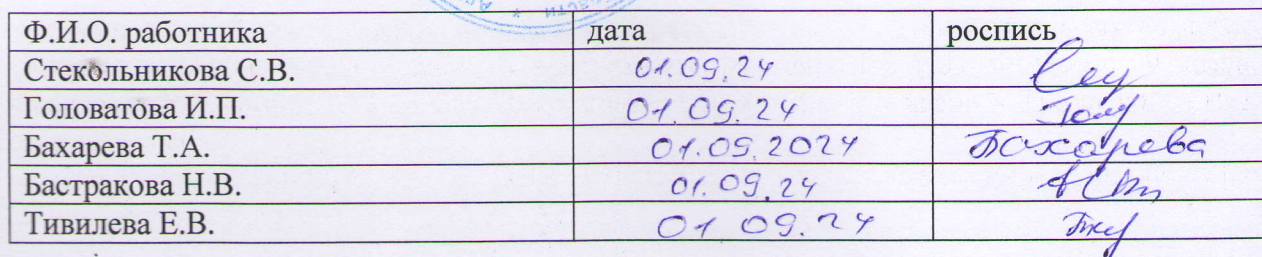 Ф.И.О. работника дата роспись
Стекольникова С.В. 01.09.24
Головатова И.П. 01.09.24
Бахарева Т.А. 01.09.2024 Бахарева
Бастракова Н.В. 01.09.24
Тивилева Е.В. 01 09.24